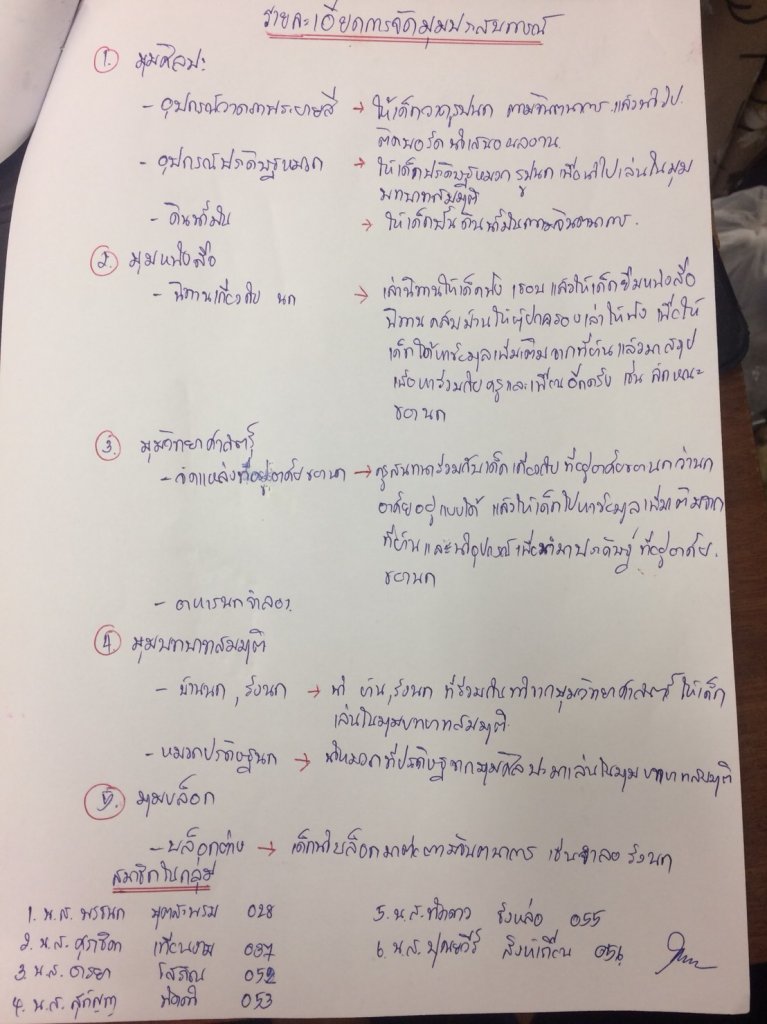 รายละเอียดการจัดมุมประสบการณ์
① มุมศิลปะ
- อุปกรณ์วาดภาพระบายสี → ให้เด็กวาดรูปนก ตามจินตนาการ แล้วนำไป
ติดบอร์ดนำเสนอผลงาน
- อุปกรณ์ประดิษฐ์หมวก → ให้เด็กประดิษฐ์หมวก รูปนก เพื่อนำไปเล่นในมุม
บทบาทสมมุติ
- ดินน้ำมัน → ให้เด็กปั้นดินน้ำมันตามจินตนาการ.
② มุมหนังสือ
- นิทานเกี่ยวกับ นก → เล่านิทานให้เด็กฟัง แล้วให้เด็กยืมหนังสือ
นิทาน กลับบ้านให้ผู้ปกครองเล่าให้ฟัง เพื่อให้
เด็กได้หาข้อมูลเพิ่มเติมจากที่บ้าน แล้วมาสรุป
เนื้อหาร่วมกับครูและเพื่อนอีกครั้ง เช่น ลักษณะ
ของนก
③ มุมวิทยาศาสตร์
- จัดแหล่งที่อยู่อาศัยของนก → ครูสนทนาร่วมกับเด็ก เกี่ยวกับ ที่อยู่อาศัยของนกว่านก
อาศัยอยู่แบบใด แล้วให้เด็กไปหาข้อมูลเพิ่มเติมจาก
ที่บ้าน และนำอุปกรณ์เพื่อนำมาประดิษฐ์ ที่อยู่อาศัย
ของนก
- อาหารนกจำลอง
④ มุมบทบาทสมมุติ
- บ้านนก, รังนก → นำ บ้าน, รังนก ที่ร่วมกันทำจากมุมวิทยาศาสตร์ ให้เด็ก
เล่นในมุมบทบาทสมมุติ
- หมวกประดิษฐ์นก → นำหมวกที่ประดิษฐ์จากมุมศิลปะมาเล่นในมุมบทบาทสมมุติ
⑤ มุมบล็อก
- บล็อกต่าง → เด็กนำบล็อกมาต่อตามจินตนาการ เช่นจำลอง รังนก
สมาชิกในกลุ่ม
1. น.ส. พรรนก 028
2. น.ส. สุธาธิดา เทียนงาม 037
3. น.ส. อารยา โสภิณ 052
4. น.ส. 053
5. น.ส. ขิงหล่อ 055
6. น.ส. ปุณยวีร์ 056